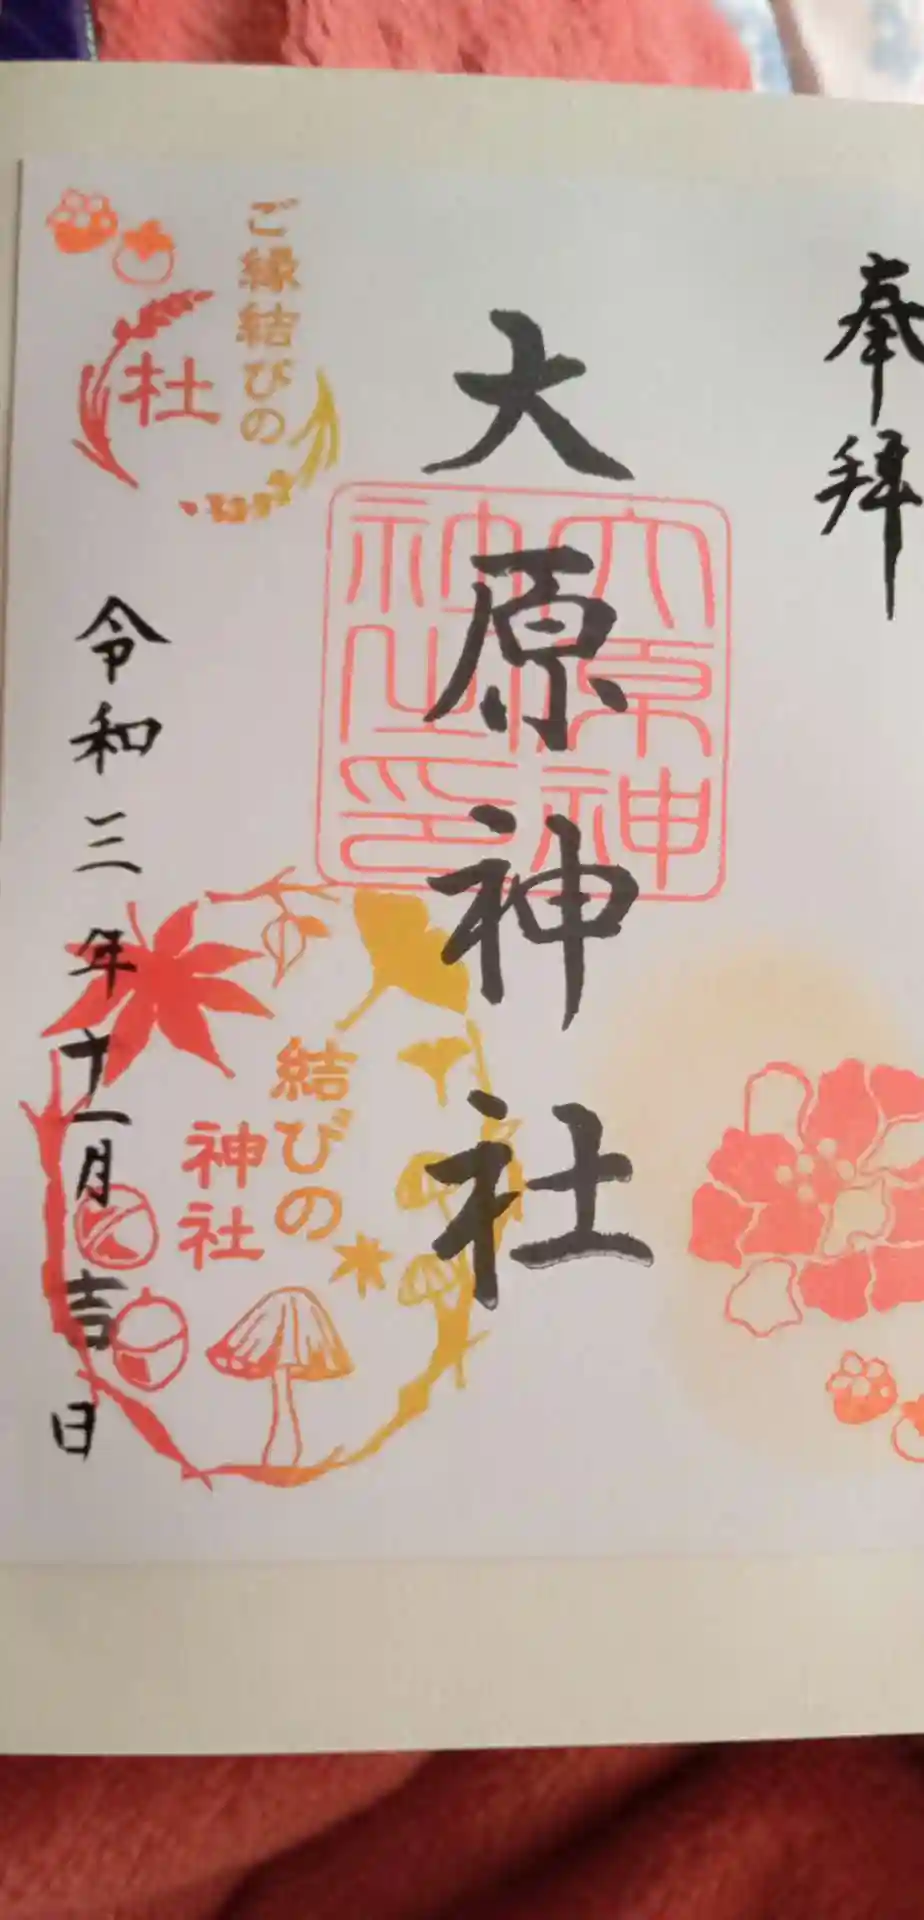 奉拝
大原神社
大原神
社之印
ご縁結びの
杜
結びの
神社
令和三年十一月吉日